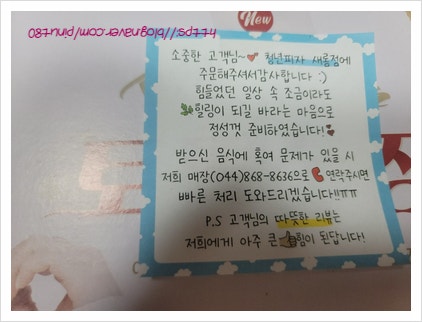 New
소중한 고객님~ 청년피자 새롬점에
주문해주셔서감사합니다 :)
힘들었던 일상 속 조금이라도
힐링이 되길 바라는 마음으로
정성껏 준비하였습니다!
받으신 음식에 혹여 문제가 있을 시
저희 매장(044)868-8636으로 연락주시면
빠른 처리 도와드리겠습니다!!ㅠㅠ
P.S 고객님의 따뜻한 리뷰는
저희에게 아주 큰 힘이 된답니다!